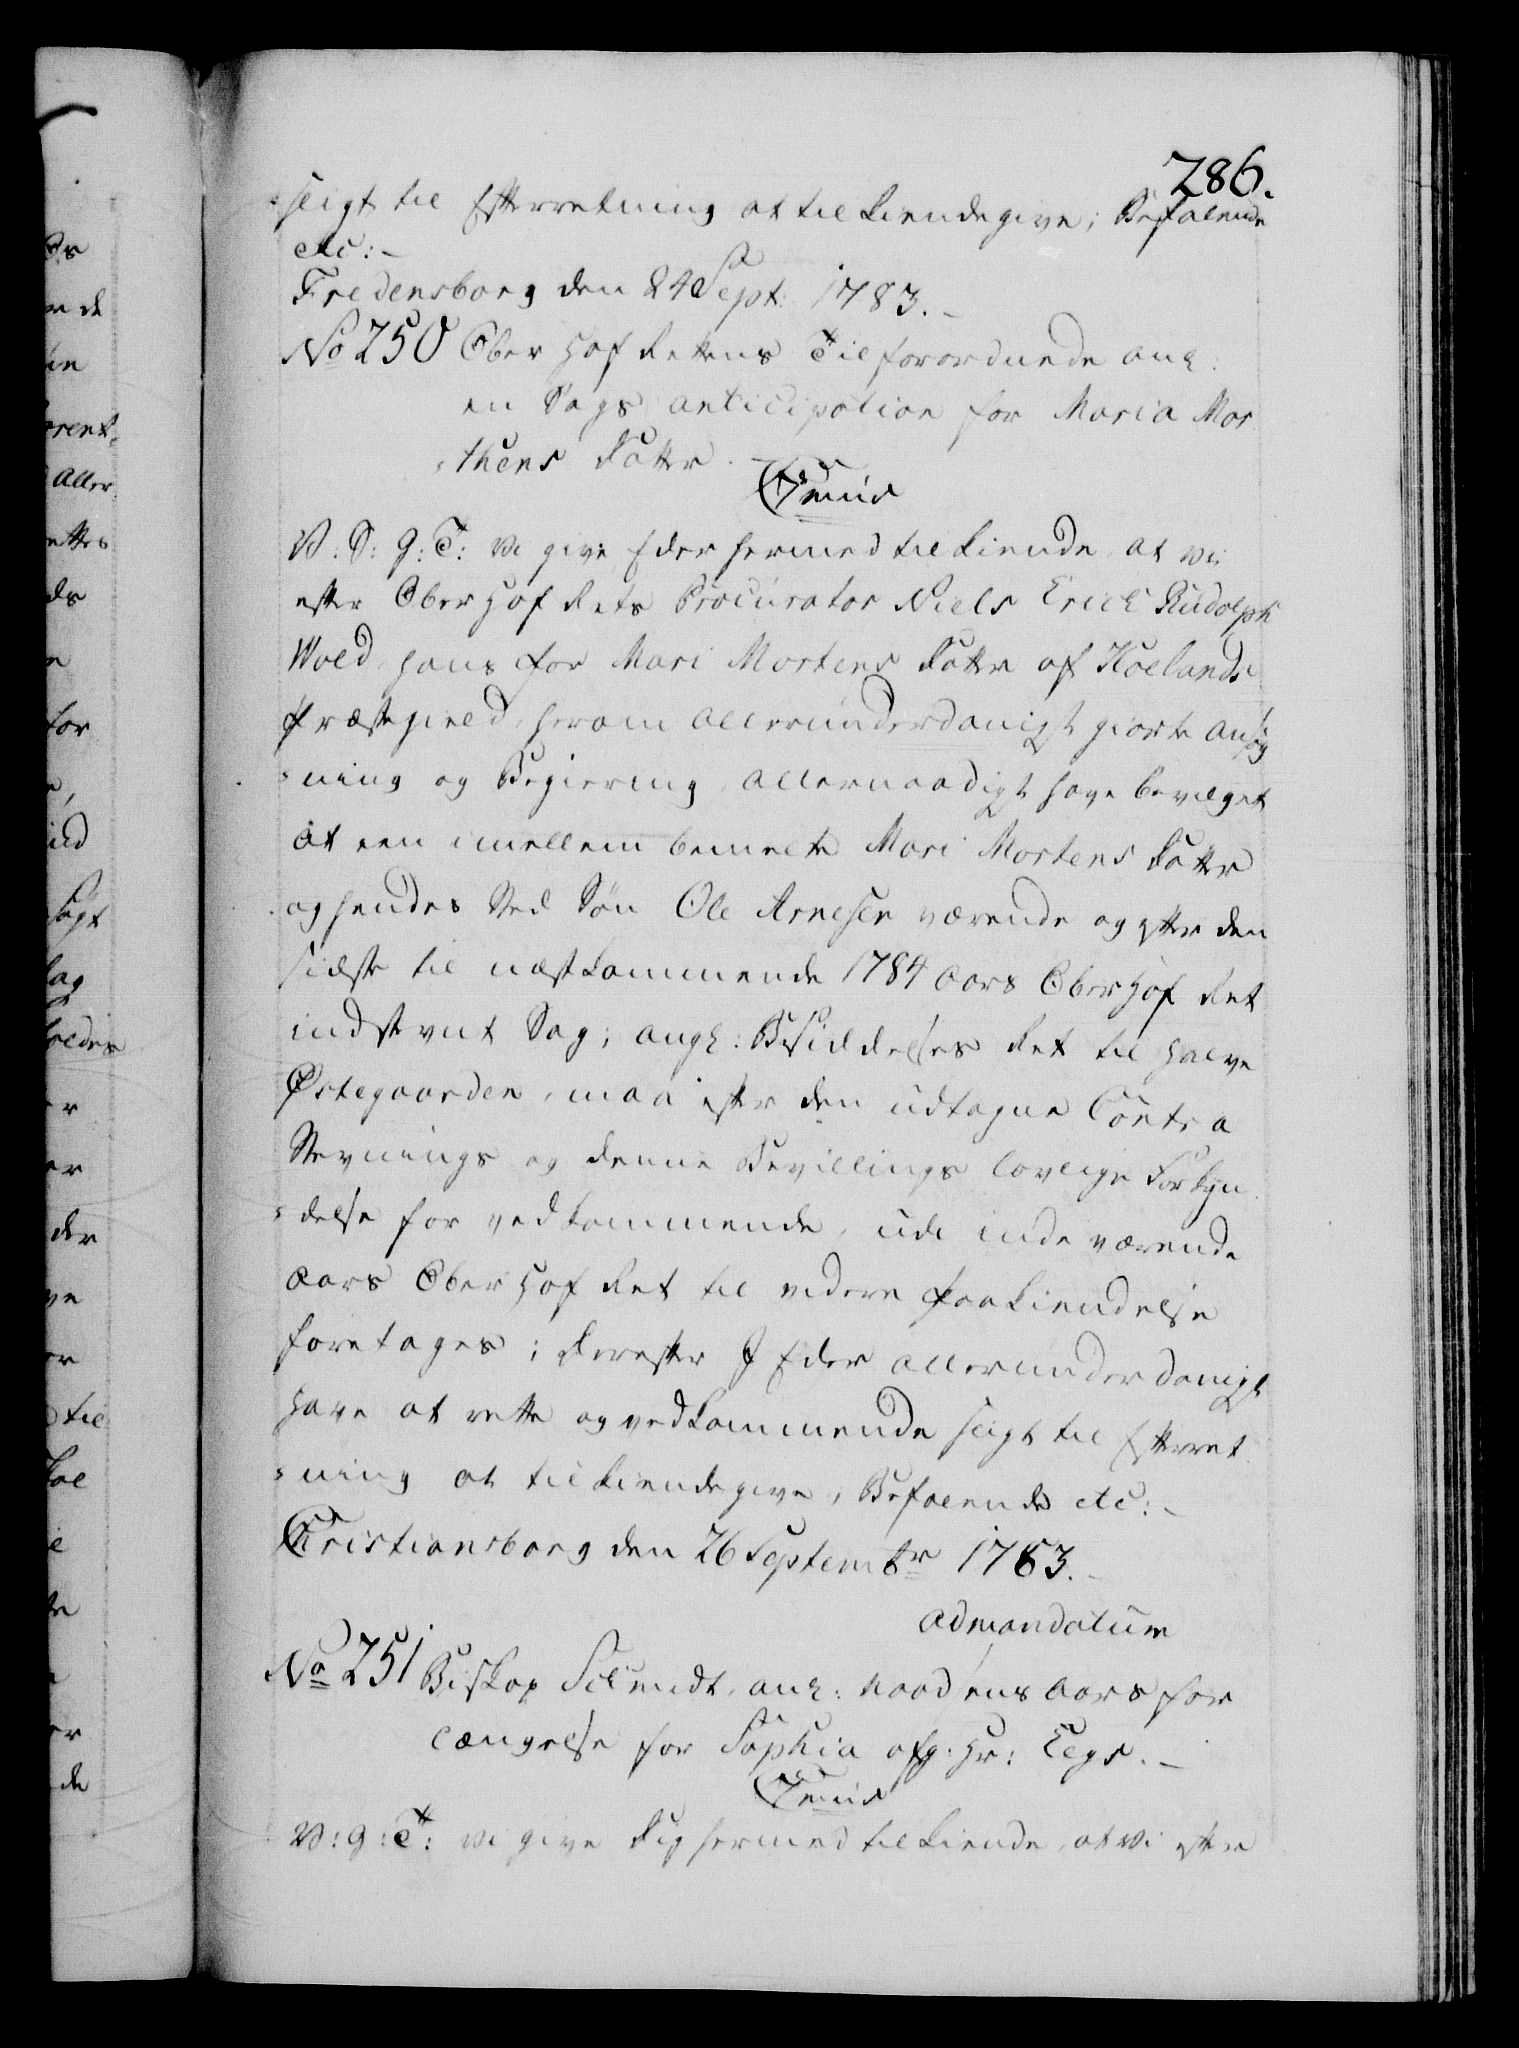 286.
=sligt til Efterretning at tilkiendegive; Befalende
etc:-
Fredensborg den 24 Sept: 1783.-
No 250 Ober Hof Rettens Tilforordnede ank:
en Sags anticipation for Maria Mor
=thens Datter.-
C7mus
V: S: G: T: Vi give Eder hermed tilkiende, at vi
efter Ober Hof Rets Procurator Niels Erich Rudolph
Wold, hans for Mari Mortens Datter af Høelands
Præstegield, herom allerunderdanigst giorte Ansøg
=ning og Begiering, allernaadigst have bevilget
at een imellem bemelte Mari Mortens Datter
og hendes Sted Søn Ole Arnesen værende og efter den
sidste til næstkommende 1784 Aars Ober Hof Ret
indstevnt Sag; angl: Besiddelses Ret til halve
Østegaarden, maa efter den udtagne Contra
Stevnings og denne Bevillings lovlige Forkyn
=delse for vedkommende, udi inde værende
Aars Ober Hof Ret til videre Paakiendelse
foretages; Derefter I Eder allerunderdanigst
have at rette og vedkommende sligt til Efterret
=ning at tilkiendegive, Befalende etc:-
Christiansborg den 26 Septembr 1783.-
ad mandatum
No 251 Biskop Schmidt, ank: Naadens Aars for
længelse for Sophia afg: Hr:
C7mus
V: G: T: Vi give Dig hermed tilkiende, at Vi efter